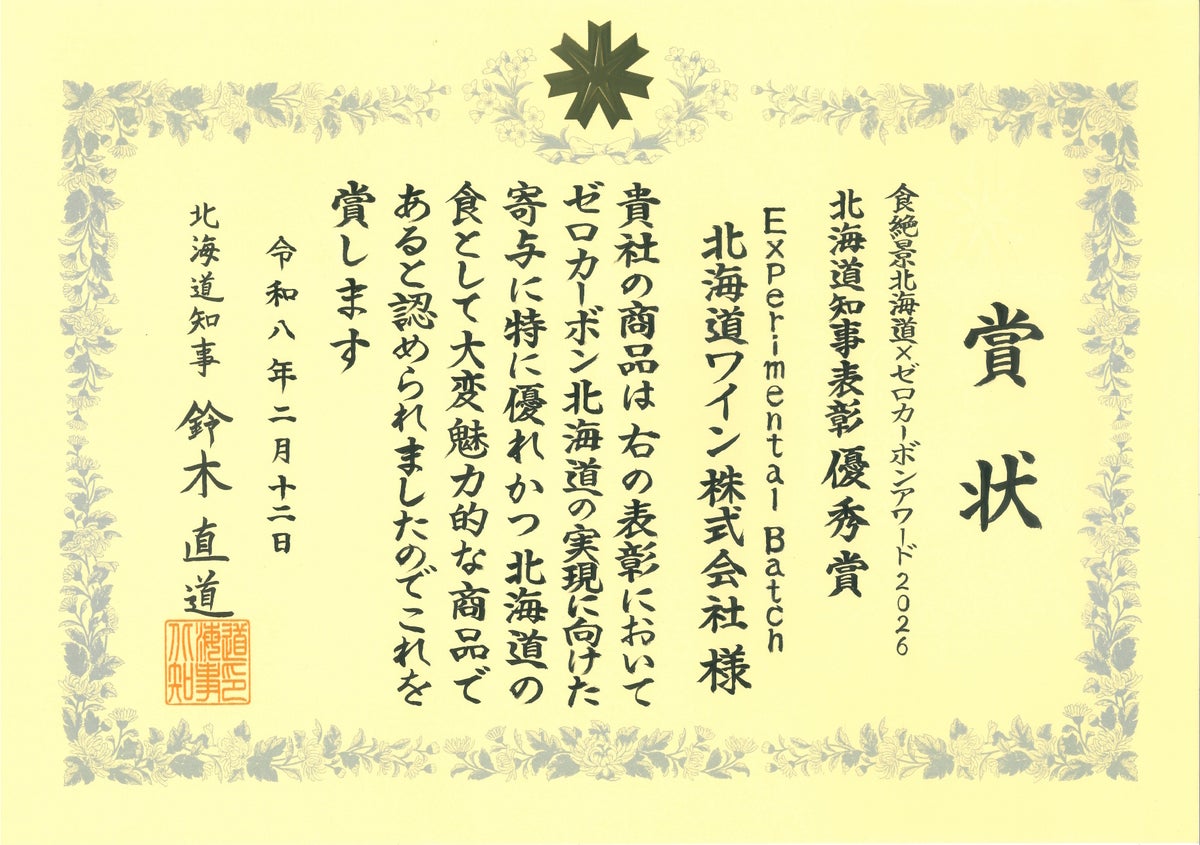 賞状
食絶景北海道×ゼロカーボンアワード2026
北海道知事表彰 優秀賞
Experimental Batch
北海道ワイン株式会社 様
貴社の商品は右の表彰において
ゼロカーボン北海道の実現に向けた
寄与に特に優れかつ北海道の
食として大変魅力的な商品で
あると認められましたのでこれを
賞します
令和八年二月十二日
北海道知事 鈴木直道
北海道知事之印